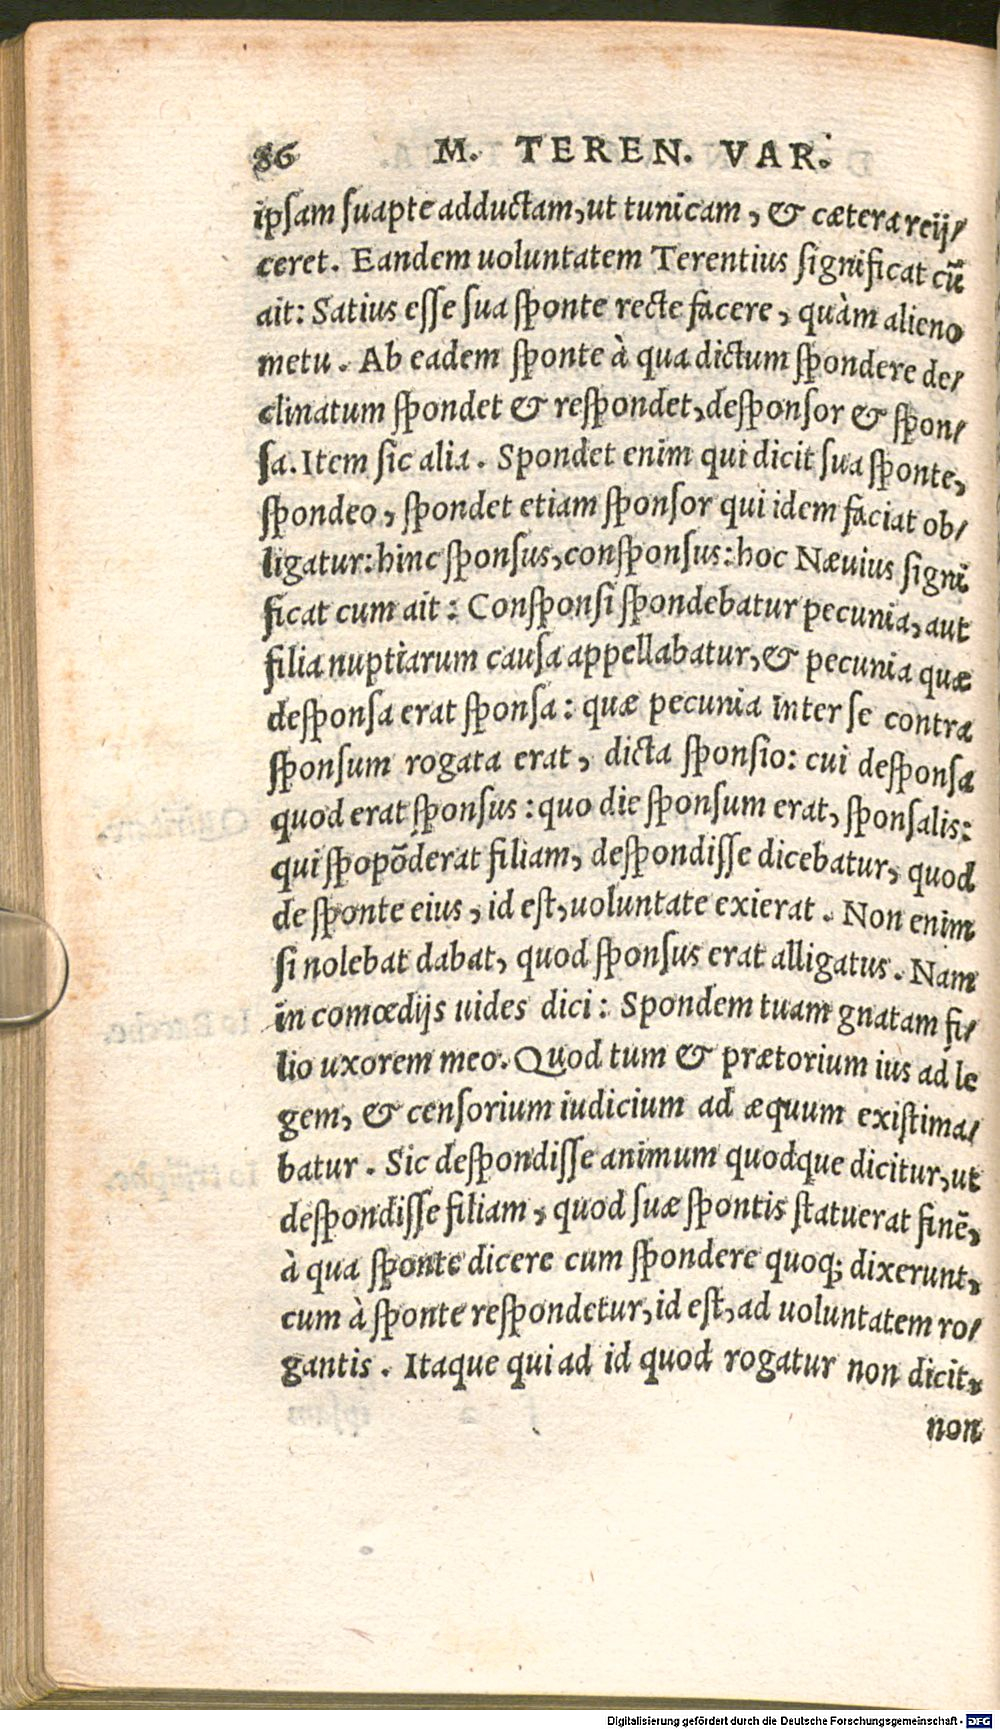 86 M. TEREN. VAR.
ipsam suapte adductam, ut tunicam, & cætera reij/
ceret. Eandem uoluntatem Terentius significat cū
ait: Satius esse sua sponte recte facere, quàm alieno
metu. Ab eadem sponte à qua dictum spondere de/
clinatum spondet & respondet, desponsor & spon/
sa. Item sic alia. Spondet enim qui dicit sua sponte,
spondeo, spondet etiam sponsor qui idem faciat ob/
ligatur: hinc sponsus, consponsus: hoc Næuius signi
ficat cum ait: Consponsi spondebatur pecunia, aut
filia nuptiarum causa appellabatur, & pecunia quæ
desponsa erat sponsa: quæ pecunia inter se contra
sponsum rogata erat, dicta sponsio: cui desponsa
quod erat sponsus: quo die sponsum erat, sponsalis:
qui spopōderat filiam, despondisse dicebatur, quod
de sponte eius, id est, uoluntate exierat. Non enim
si nolebat dabat, quod sponsus erat alligatus. Nam
in comœdijs uides dici: Spondem tuam gnatam fi/
lio uxorem meo. Quod tum & prætorium ius ad le
gem, & censorium iudicium ad æquum existima/
batur. Sic despondisse animum quodque dicitur, ut
despondisse filiam, quod suæ spontis statuerat finē,
à qua sponte dicere cum spondere quoq; dixerunt,
cum à sponte respondetur, id est, ad uoluntatem ro/
gantis. Itaque qui ad id quod rogatur non dicit,
non
Digitalisierung gefördert durch die Deutsche Forschungsgemeinschaft - DFG